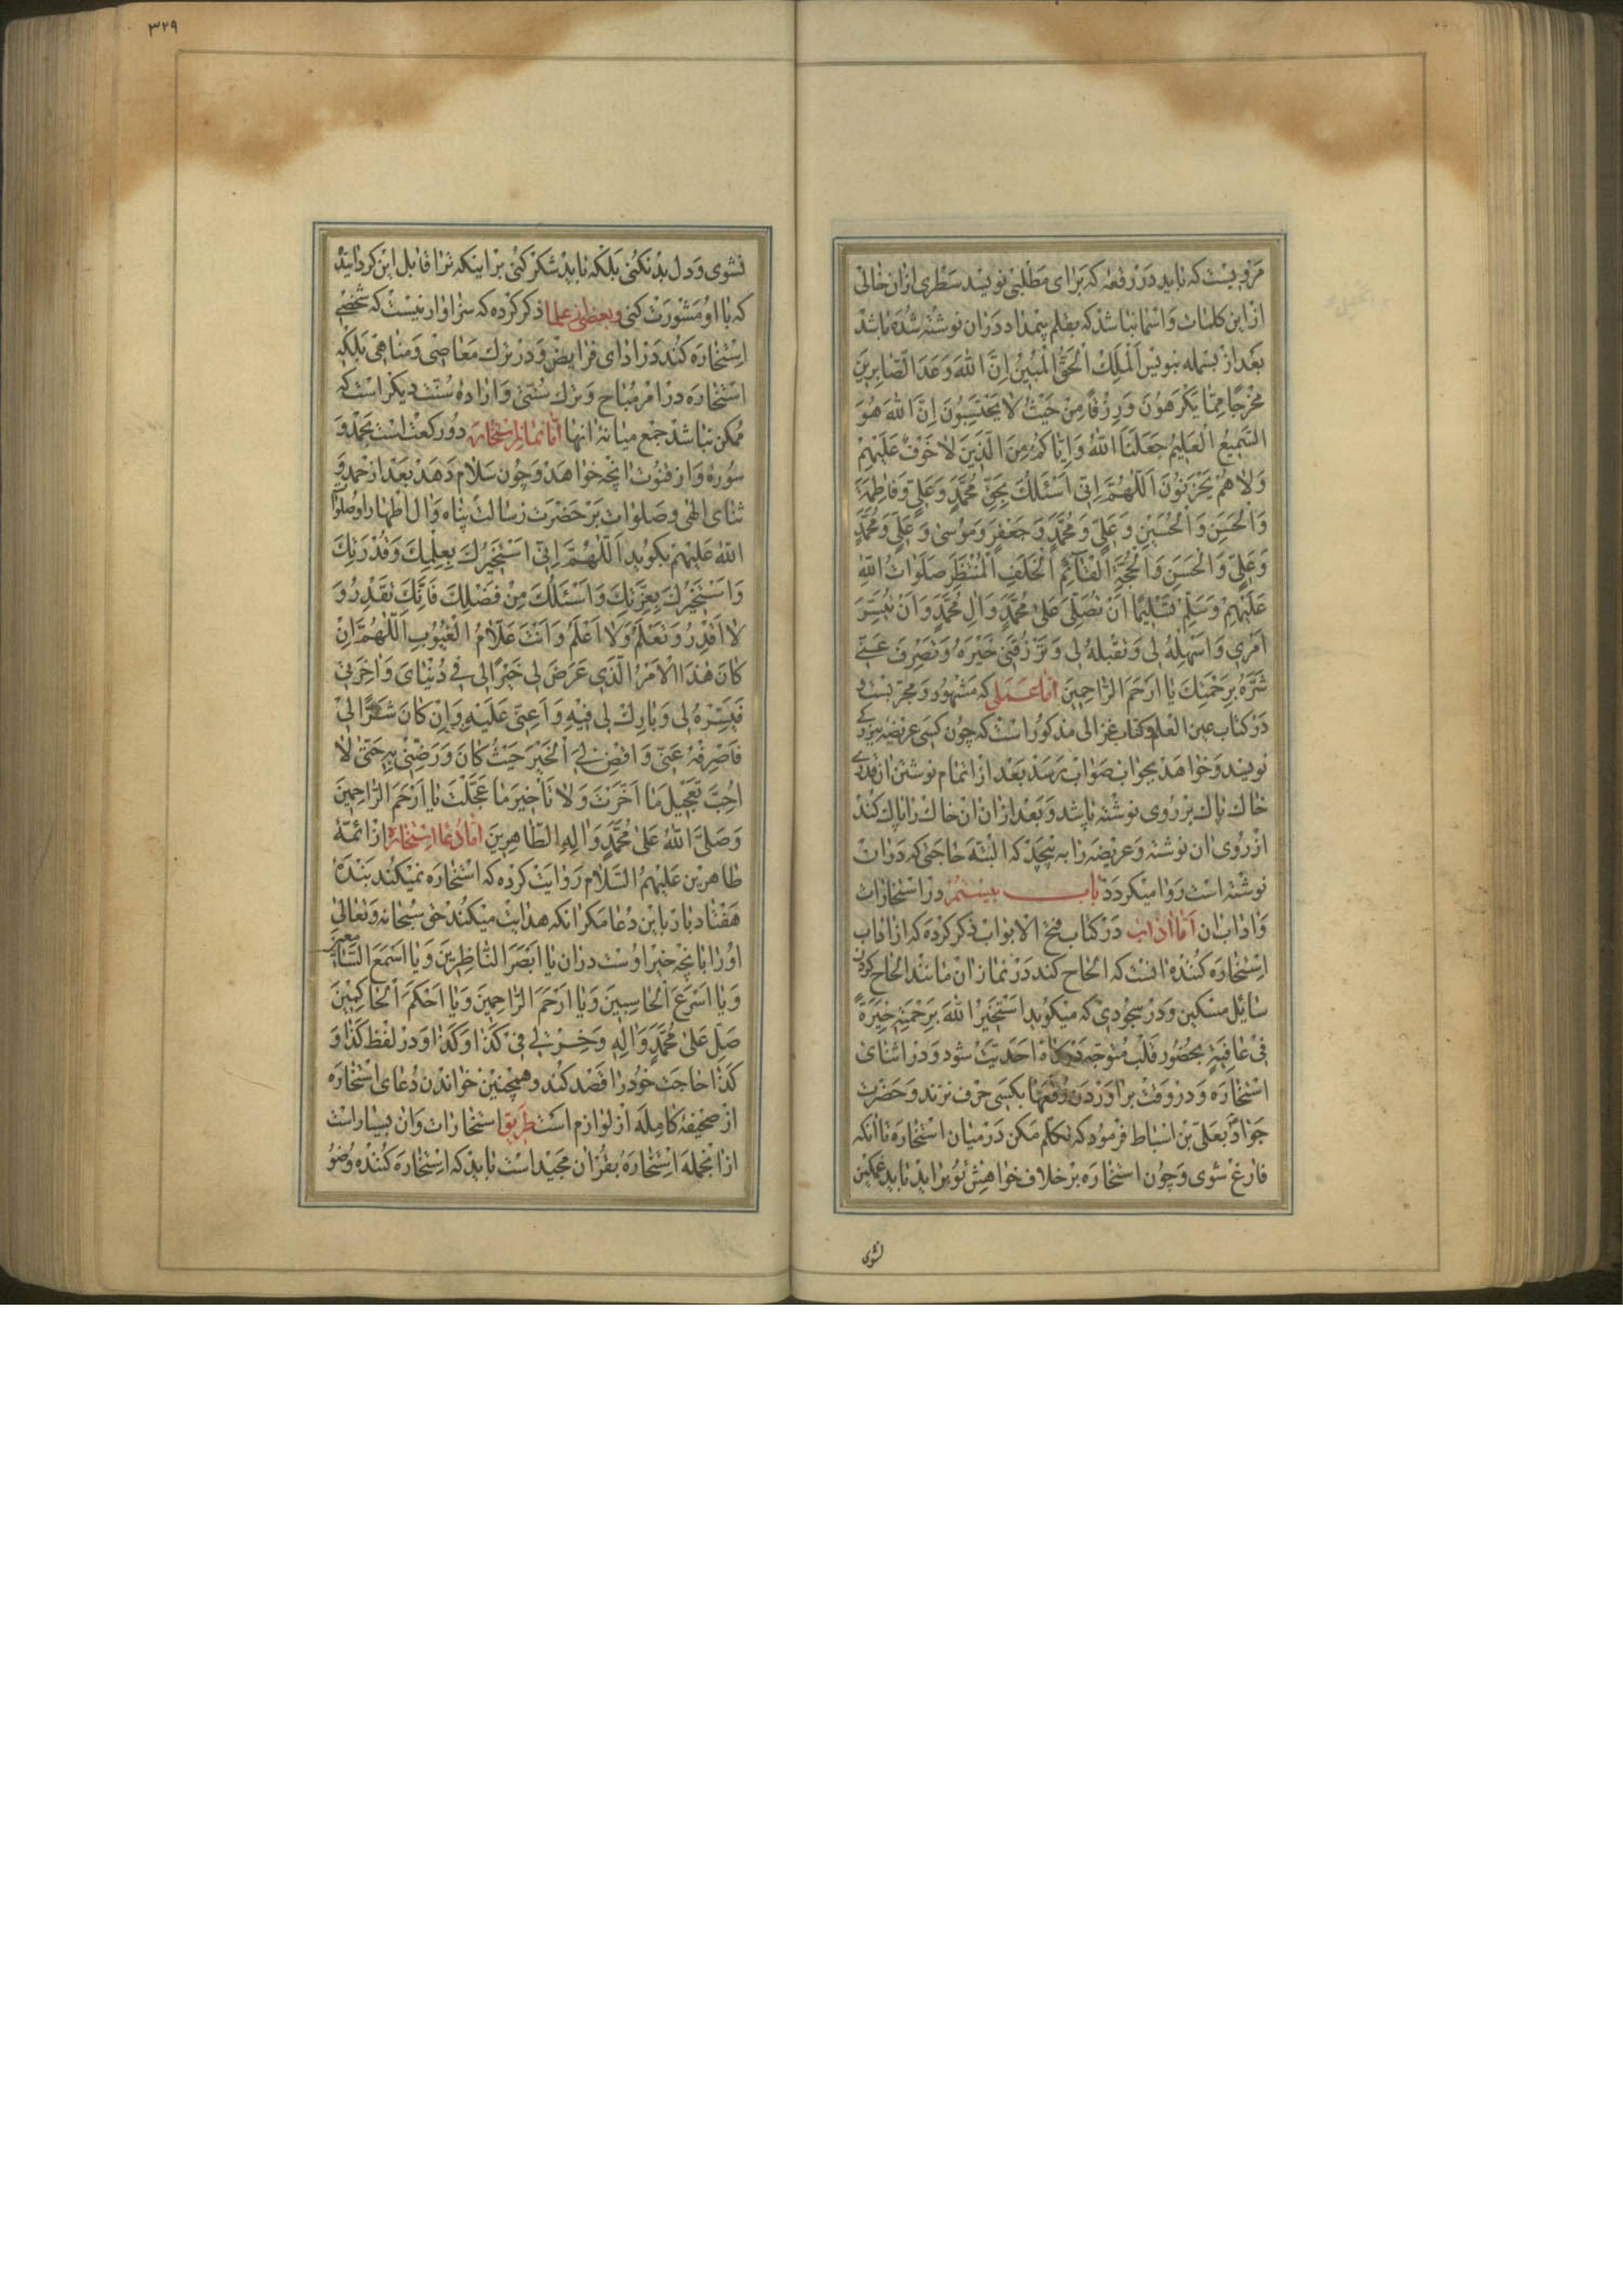 مَرْویست که باید در رقعه که برای مطلبی نویسد سطری از ان خالی
از این کلمات و اسما نباشد که بقلم بیمداد در ان نوشته شده باشد
بعد از بسمله بنویس اَلْمَلِكُ الْحَقُّ الْمُبِينُ اِنَّ اللّٰهَ وَعَدَ الصّٰابِرِينَ
مَخْرَجًا مِمّٰا يَكْرَهُونَ وَرِزْقًا مِنْ حَيْثُ لٰا يَحْتَسِبُونَ اِنَّ اللّٰهَ هُوَ
السَّمِيعُ الْعَلِيمُ جَعَلَنَا اللّٰهُ وَاِيّٰاكُمْ مِنَ الَّذِينَ لٰا خَوْفٌ عَلَيْهِمْ
وَلٰا هُمْ يَحْزَنُونَ اَللّٰهُمَّ اِنّى اَسْئَلُكَ بِحَقِّ مُحَمَّدٍ وَعَلِيٍّ وَفٰاطِمَةَ
وَالْحَسَنِ وَالْحُسَيْنِ وَعَلِيٍّ وَمُحَمَّدٍ وَجَعْفَرٍ وَمُوسٰى وَعَلِيٍّ وَمُحَمَّدٍ
وَعَلِيٍّ وَالْحَسَنِ وَالْحُجَّةِ الْقٰآئِمِ الْخَلَفِ الْمُنْتَظَرِ صَلَوٰاتُ اللّٰهِ
عَلَيْهِمْ وَسَلِّمْ تَسْلِيمًا اَنْ تُصَلِّىَ عَلىٰ مُحَمَّدٍ وَاٰلِ مُحَمَّدٍ وَاَنْ تُيَسِّرَ
اَمْرِي وَاَسْهِلْهُ لى وَتَقْبَلَهُ لى وَتَرْزُقَنى خَيْرَهُ وَتَصْرِفَ عَنّى
شَرَّهُ بِرَحْمَتِكَ يٰا اَرْحَمَ الرّٰاحِمِينَ اما عملی که مشهور و مجربست و
در کتاب عین العلم و کتاب غزالی مذکور است که چون کسی عریضه ببزرکی
نویسد و خواهد بجواب صواب برسد بعد از اتمام نوشتن ان قدری
خاك پاك بر روی نوشته پاشد و بعد از ان ان خاك را پاك کند
از روی ان نوشته و عریضه را به پیچد که البته حاجتی که در ان
نوشته است روا میکردد باب بیستم در استخارات
و اداب ان اما اداب در کتاب فتح الابواب ذکر کرده که از اداب
استخاره کننده انست که الحاح کند در نماز ان مانند الحاح کردن
سائل مسکین و در سجودی که میکوید اَسْتَخِيرُ اللّٰهَ بِرَحْمَتِهِ خِيَرَةً
فى عٰافِيَةٍ بحضور قلب متوجه درکاه احدیت شود و در اثنای
استخاره و در وقت براوردن رقعها بکسی حرف نزند و حضرت
جواد بعلی بن اسباط فرمود که تکلم مکن در میان استخاره تا انکه
فارغ شوی و چون استخاره بر خلاف خواهش تو براید باید غمکین
نشوی
٣٢٩
نشوی و دل بد نکنی بلکه باید شکر کنی بر اینکه ترا قابل این کردانید
که با او مشورت کنی و بعضی از علما ذکر کرده که سزاوار نیست که شخصی
استخاره کند در ادای فرایض و در ترك معاصی و مناهی بلکه
استخاره در امر مباح و ترك سنتی و اراده سنت دیکر است که
ممکن نباشد جمع میانه انها اما نماز استخاره دو رکعت است بحمد و
سوره و از قنوت انچه خواهد و چون سلام دهد بعد از حمد و
ثنای الهی و صلوات بر حضرت رسالت پناه و ال اطهار او صلوات
اللّٰه علیهم بکوید اَللّٰهُمَّ اِنّى اَسْتَخِيرُكَ بِعِلْمِكَ وَقُدْرَتِكَ
وَاَسْتَخِيرُكَ بِعِزَّتِكَ وَاَسْئَلُكَ مِنْ فَضْلِكَ فَاِنَّكَ تَقْدِرُ وَ
لٰا اَقْدِرُ وَتَعْلَمُ وَلٰا اَعْلَمُ وَاَنْتَ عَلّٰامُ الْغُيُوبِ اَللّٰهُمَّ اِنْ
كٰانَ هٰذَا الْاَمْرُ الَّذِي عَرَضَ لى خَيْرًا لى فى دُنْيٰاىَ وَاٰخِرَتى
فَيَسِّرْهُ لى وَبٰارِكْ لى فِيهِ وَاَعِنّى عَلَيْهِ وَاِنْ كٰانَ شَرًّا لى
فَاصْرِفْهُ عَنّى وَاقْضِ لِىَ الْخَيْرَ حَيْثُ كٰانَ وَرَضِّنى بِهِ حَتّٰى لٰا
اُحِبَّ تَعْجِيلَ مٰا اَخَّرْتَ وَلٰا تَأْخِيرَ مٰا عَجَّلْتَ يٰا اَرْحَمَ الرّٰاحِمِينَ
وَصَلَّى اللّٰهُ عَلىٰ مُحَمَّدٍ وَاٰلِهِ الطّٰاهِرِينَ اما دعا استخاره از ائمه
طاهرین علیهم السلام روایت کرده که استخاره نمیکند بنده
هفتاد بار باین دعا مکر انکه هدایت میکند حق سبحانه و تعالی
او را بانچه خیر اوست در ان يٰا اَبْصَرَ النّٰاظِرِينَ وَيٰا اَسْمَعَ السّٰامعین
وَيٰا اَسْرَعَ الْحٰاسِبِينَ وَيٰا اَرْحَمَ الرّٰاحِمِينَ وَيٰا اَحْكَمَ الْحٰاكِمِينَ
صَلِّ عَلىٰ مُحَمَّدٍ وَاٰلِهِ وَخِرْ لى فى كَذٰا وَكَذٰا و در لفظ کذا و
کذا حاجت خود را قصد کند و همچنین خواندن دعای استخاره
از صحیفه کامله از لوازم است طریق استخارات و ان بسیار است
از انجمله استخاره بقران مجید است باید که استخاره کننده وضو